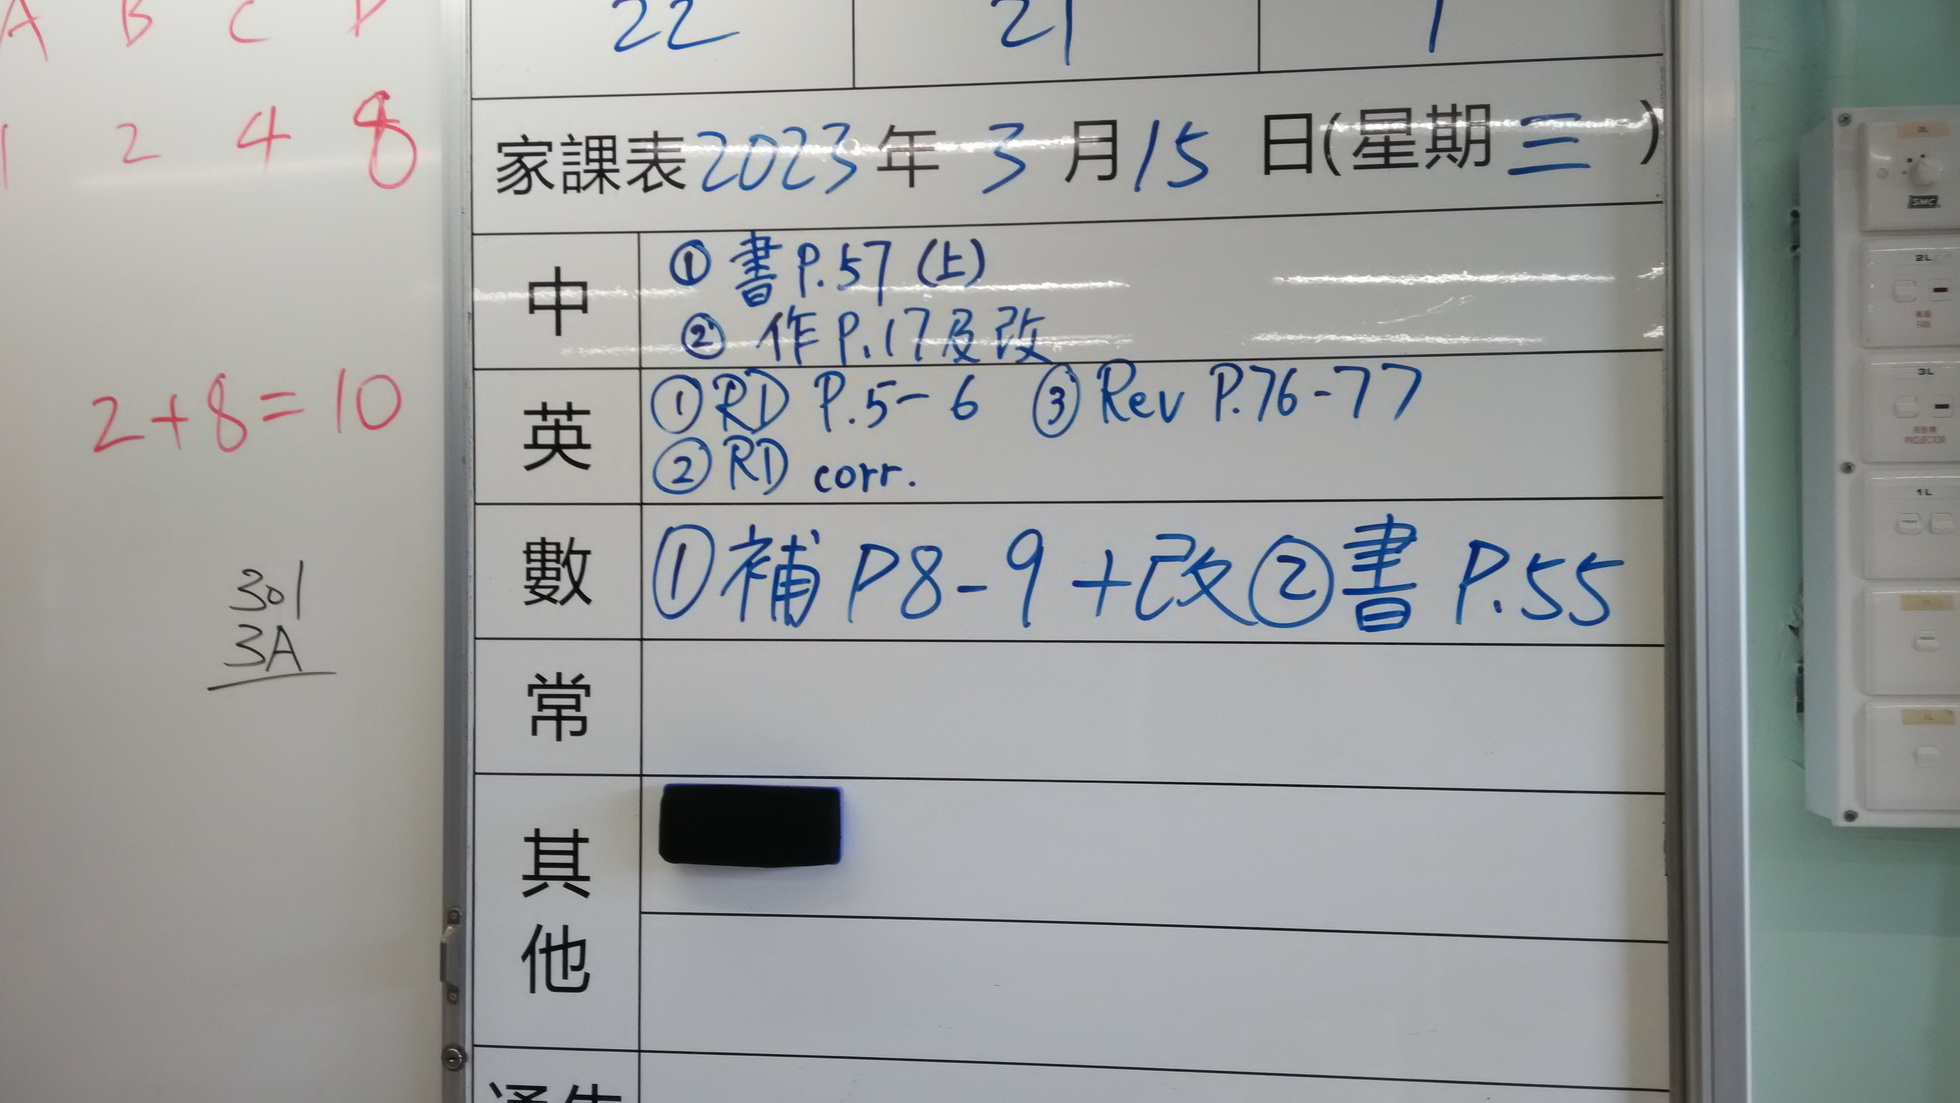 A B C D
1 2 4 8
2+8=10
301
3A
22 21 1
家課表2023年3月15日(星期三)
中
① 書P.57(上)
② 作P.17及改
英
①RD P.5-6 ③Rev P.76-77
②RD corr.
數
①補P8-9+改②書P.55
常
其他
通告
2L
SMC
2L
FAN
3L
投影機
PROJECTOR
1L
1L